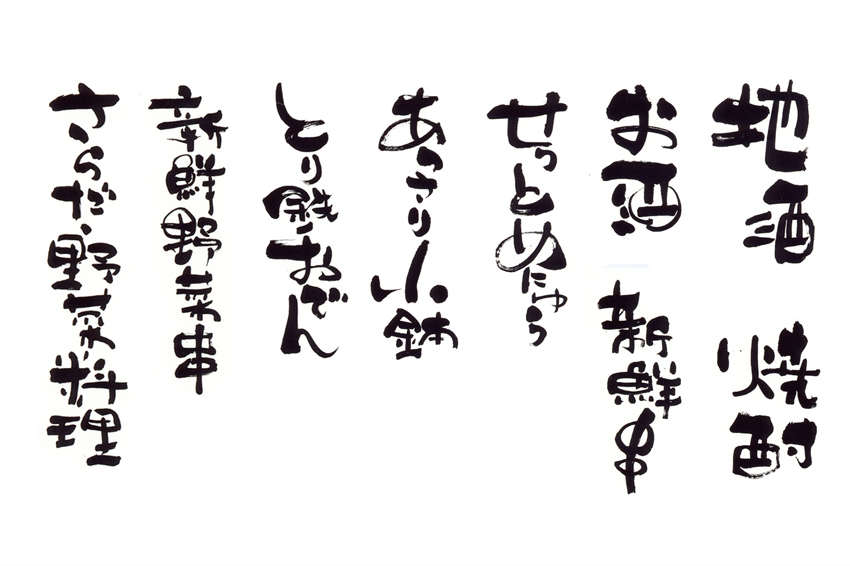 地酒
焼酎
お酒
新鮮串
せっとめにゅう
あっさり小鉢
とり鉄おでん
新鮮野菜串
さらだ・野菜料理